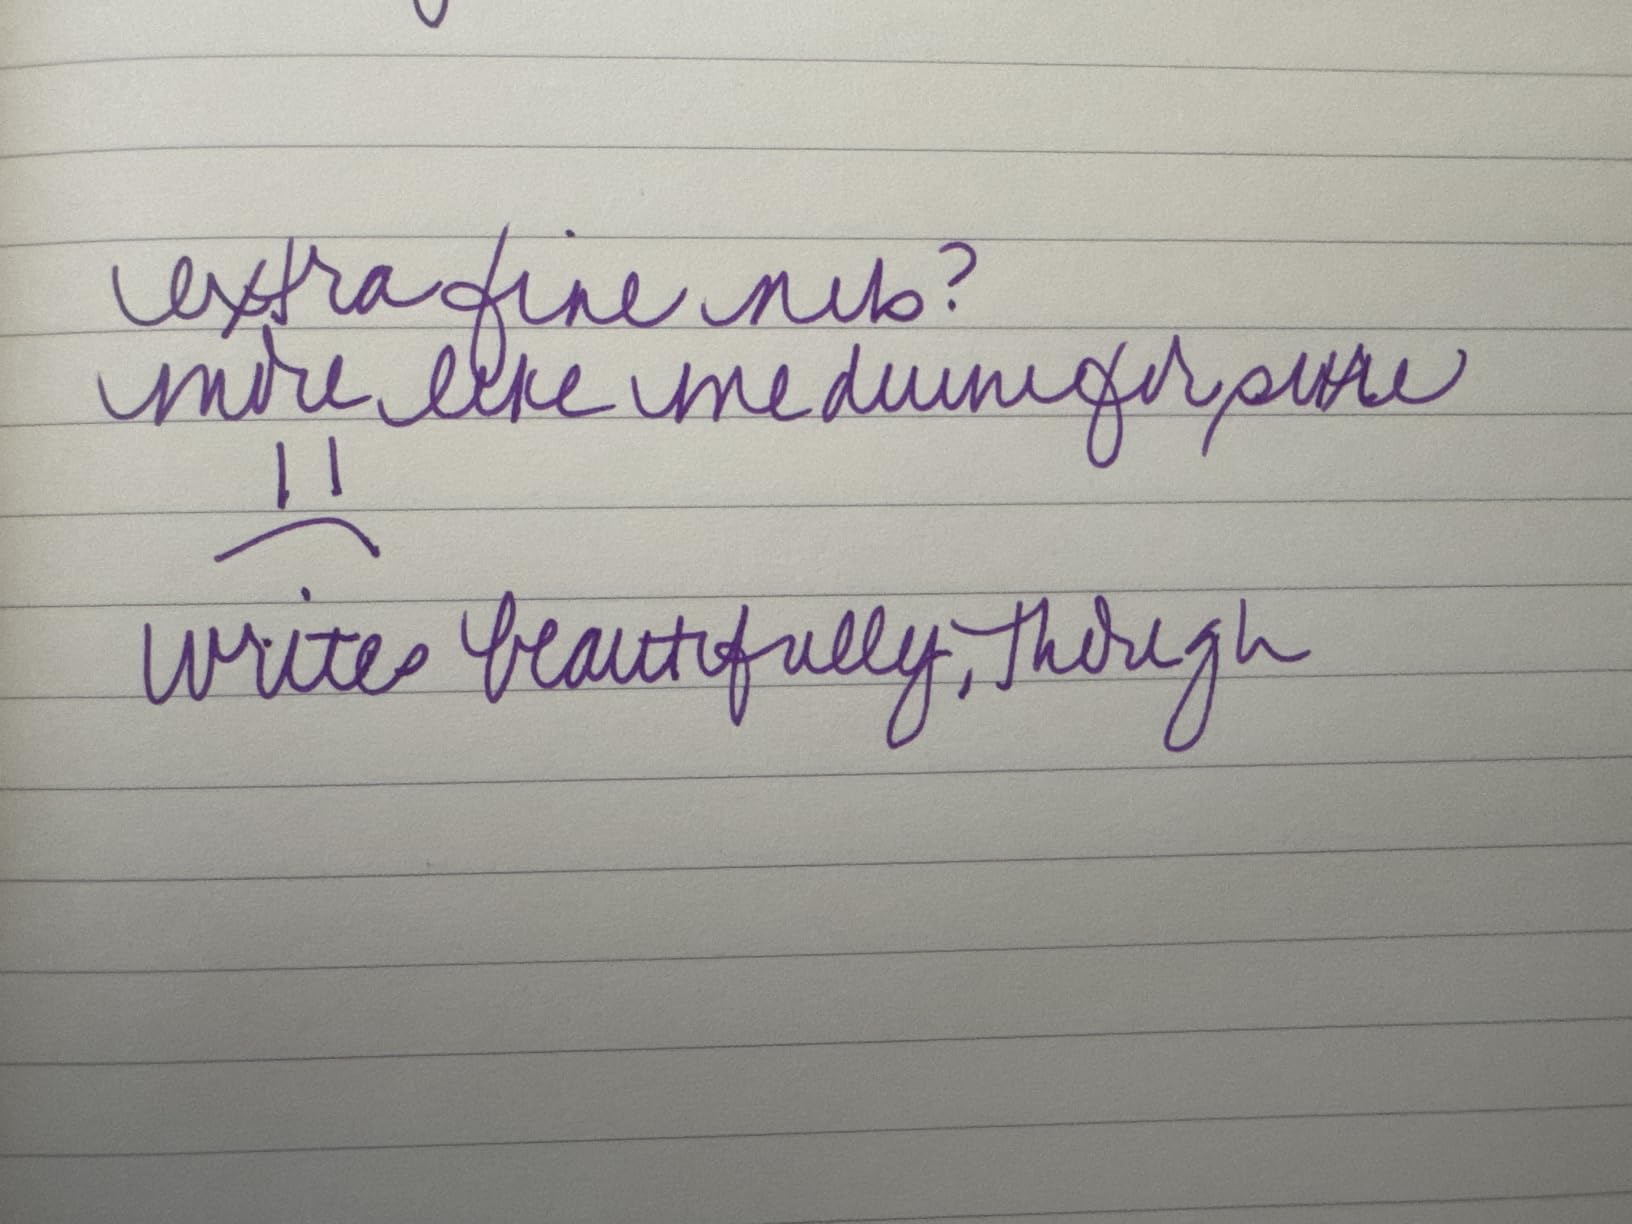 extra fine nib?
more like medium for sure
writes beautifully, though